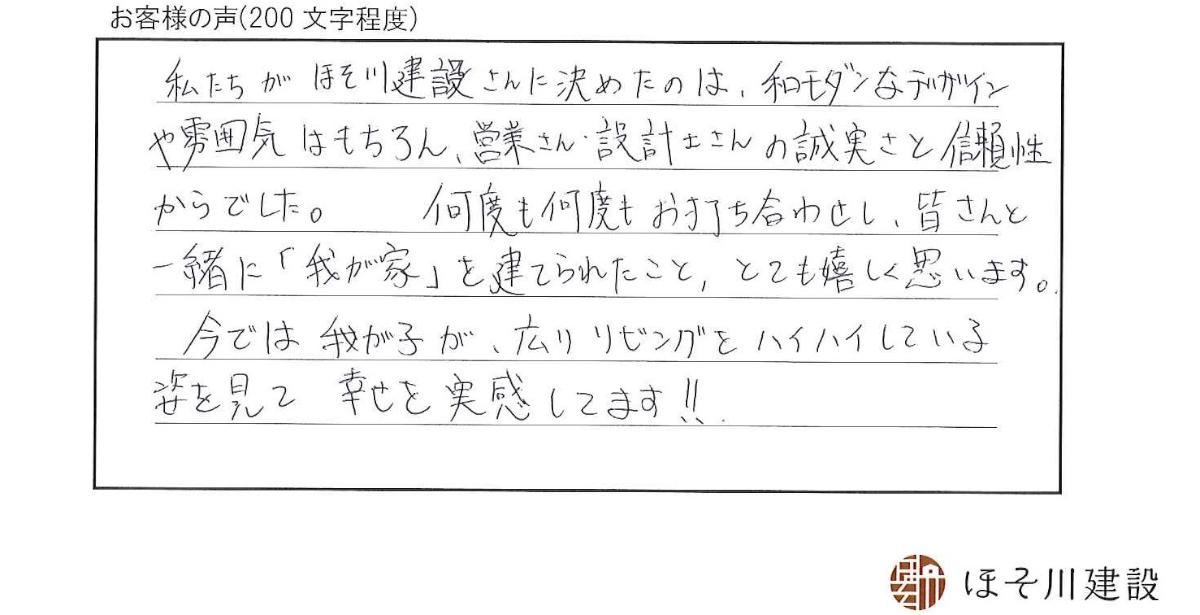 お客様の声(200 文字程度)
私たちが ほそ川建設さんに決めたのは、和モダンなデザイン
や雰囲気はもちろん、営業さん・設計士さんの誠実さと信頼性
からでした。 何度も何度もお打ち合わせし、皆さんと
一緒に「我が家」を建てられたこと、とても嬉しく思います。
今では我が子が、広いリビングをハイハイしている
姿を見て 幸せを実感してます!!
ほそ川建設